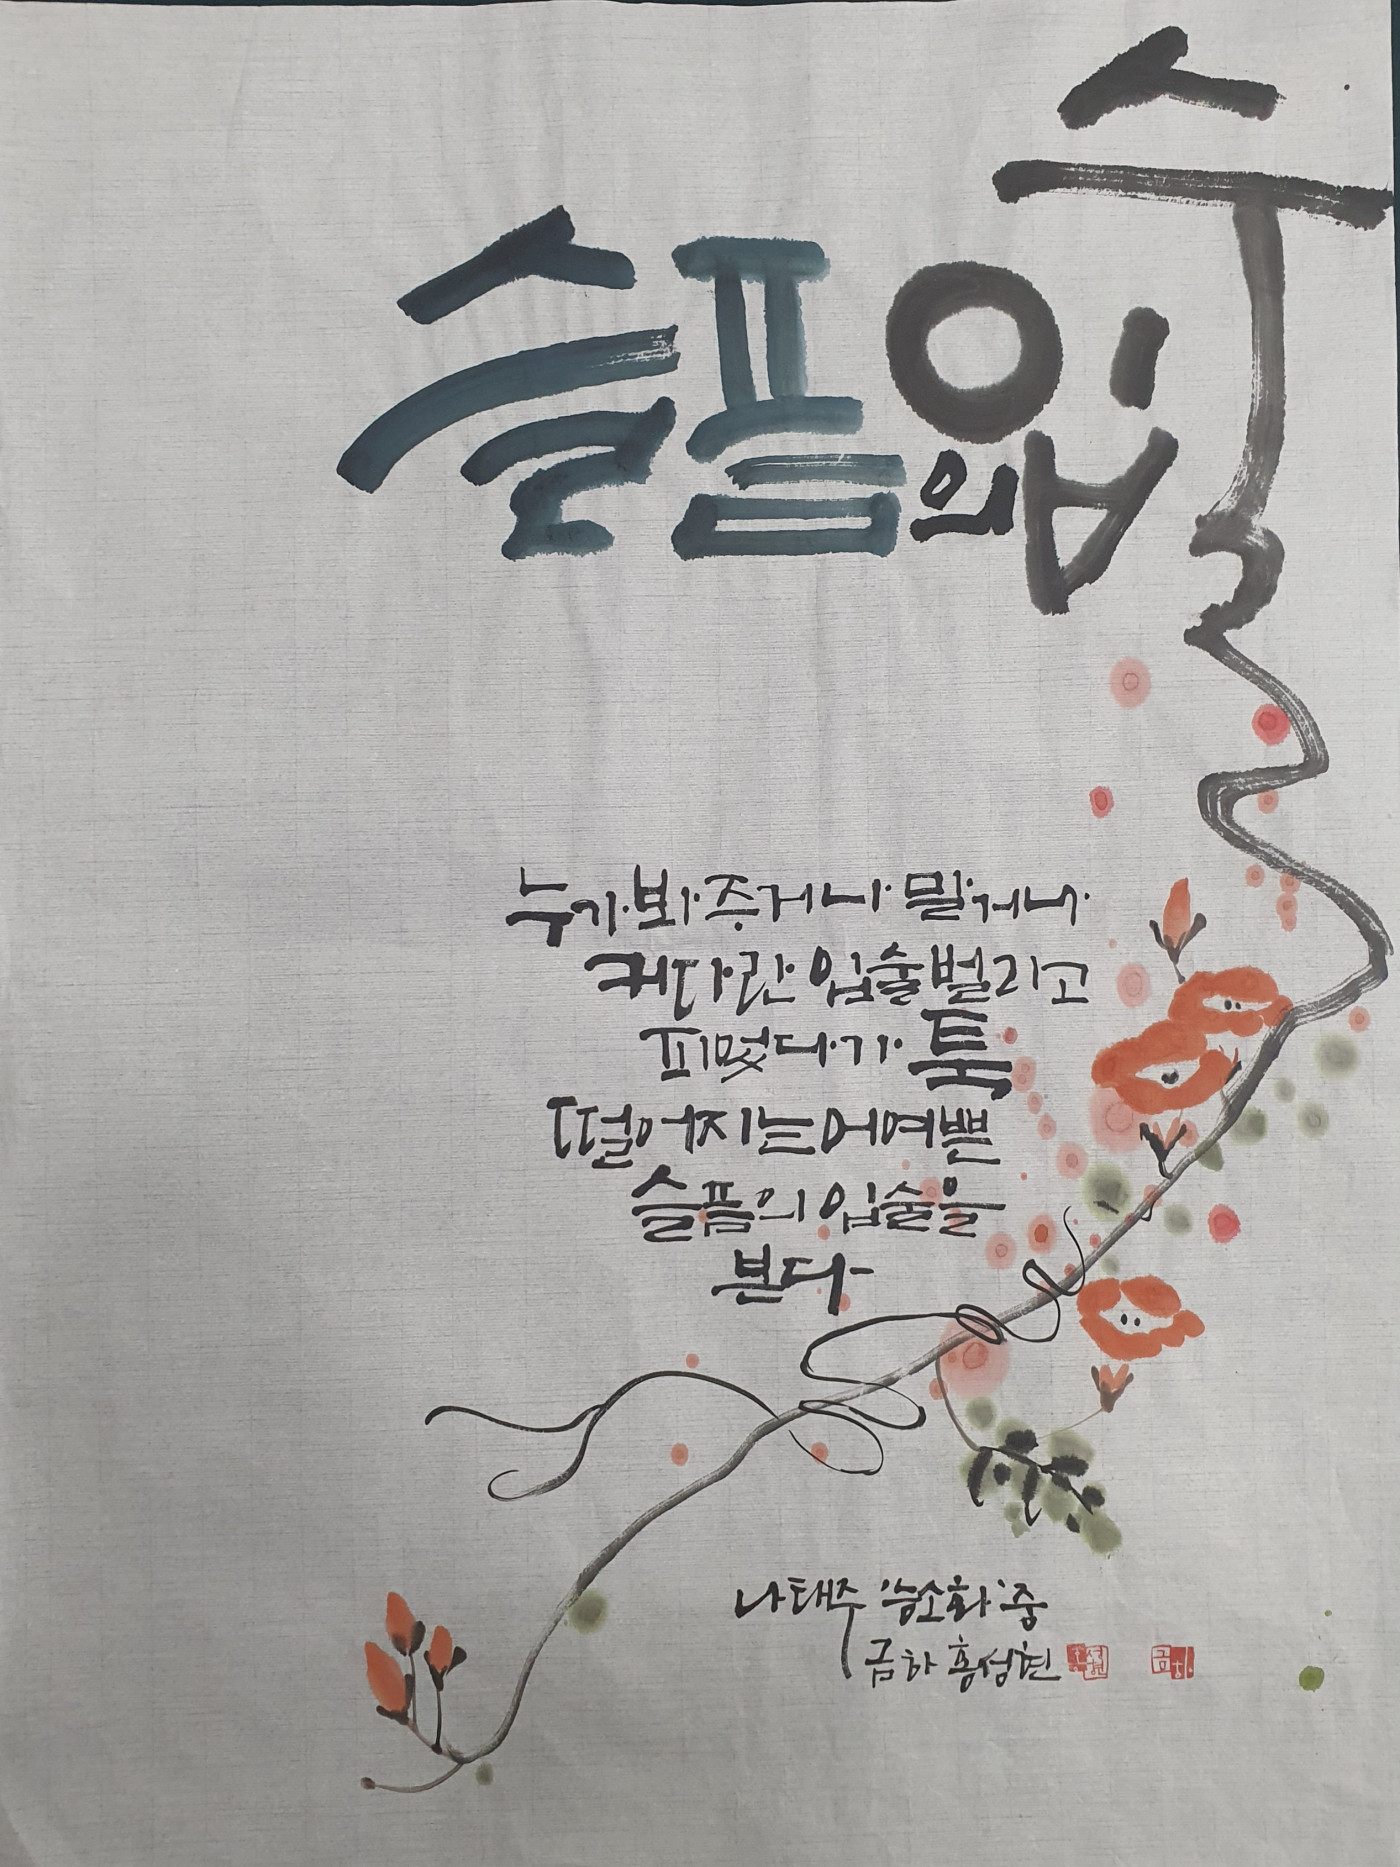 슬픔의 입술
누가 봐주거나 말거나
커다란 입술 벌리고
피었다가 툭
떨어지는 어여쁜
슬픔의 입술을
본다
나태주 '능소화' 중
금하 홍성현